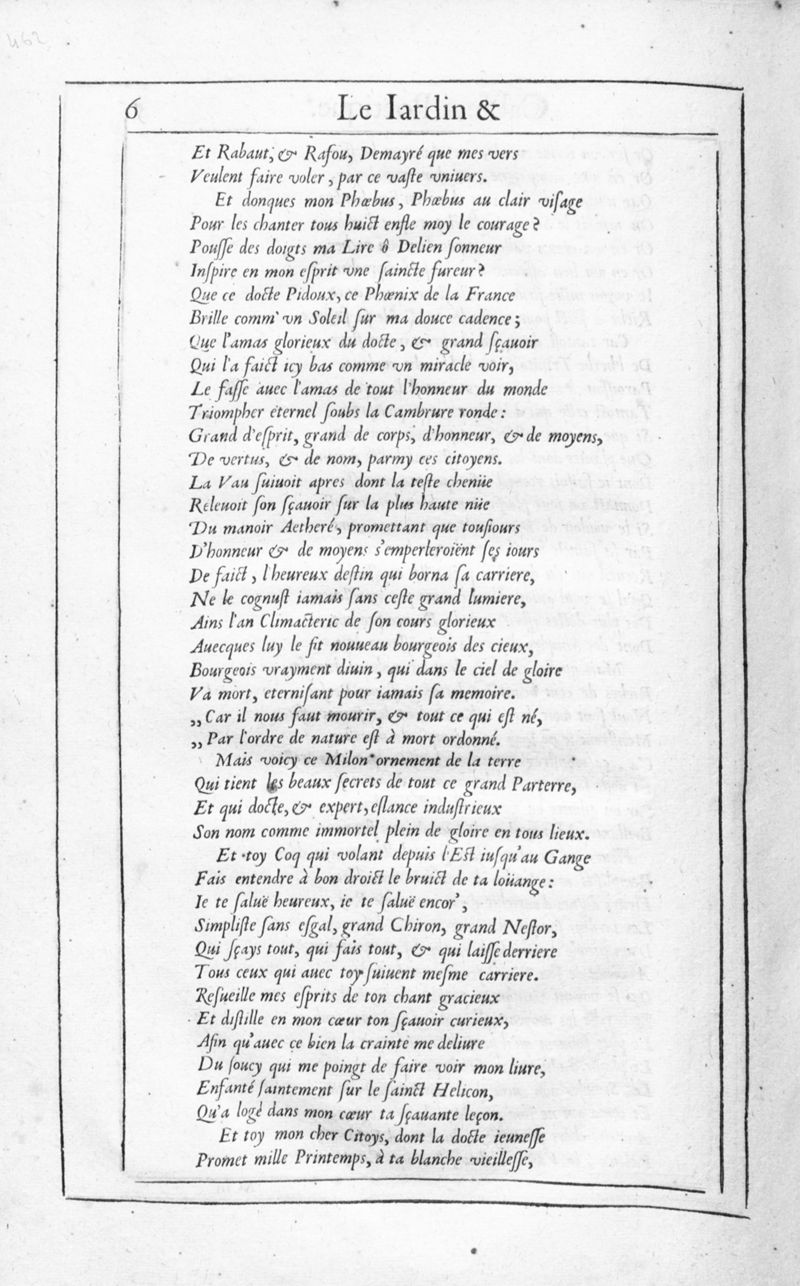 462
6 Le Iardin &
Et Rabaut, & Raſou, Demayré que mes vers
Veulent faire voler, par ce vaſte vniuers.
Et donques mon Phœbus, Phœbus au clair viſage
Pour les chanter tous huict enfle moy le courage?
Pouſſe des doigts ma Lire ô Delien ſonneur
Inſpire en mon eſprit vne ſaincte fureur?
Que ce docte Pidoux, ce Phœnix de la France
Brille comm' vn Soleil ſur ma douce cadence;
Que l'amas glorieux du docte, & grand ſçauoir
Qui l'a faict icy bas comme vn miracle voir,
Le faſſe auec l'amas de tout l'honneur du monde
Triompher éternel ſoubs la Cambrure ronde:
Grand d'eſprit, grand de corps, d'honneur, & de moyens,
De vertus, & de nom, parmy ces citoyens.
La Vau ſuiuoit apres dont la teſte chenüe
Releuoit ſon ſçauoir ſur la plus haute nüe
Du manoir Aetheré, promettant que touſiours
D'honneur & de moyens s'emperleroiënt ſes iours
De faict, l'heureux deſtin qui borna ſa carriere,
Ne le cognuſt iamais ſans ceſte grand lumiere,
Ains l'an Climacteric de ſon cours glorieux
Auecques luy le fit nouueau bourgeois des cieux,
Bourgeois vrayment diuin, qui dans le ciel de gloire
Va mort, eterniſant pour iamais ſa memoire.
„Car il nous faut mourir, & tout ce qui eſt né,
„Par l'ordre de nature eſt à mort ordonné.
Mais voicy ce Milon ornement de la terre
Qui tient les beaux ſecrets de tout ce grand Parterre,
Et qui docte, & expert, eſlance induſtrieux
Son nom comme immortel plein de gloire en tous lieux.
Et toy Coq qui volant depuis l'Eſt iuſqu'au Gange
Fais entendre à bon droict le bruict de ta loüange:
Ie te ſaluë heureux, ie te ſaluë encor',
Simpliſte ſans eſgal, grand Chiron, grand Neſtor,
Qui ſçays tout, qui fais tout, & qui laiſſe derriere
Tous ceux qui auec toy ſuiuent meſme carriere.
Reſueille mes eſprits de ton chant gracieux
Et diſtille en mon cœur ton ſçauoir curieux,
Afin qu'auec ce bien la crainte me deliure
Du ſoucy qui me poingt de faire voir mon liure,
Enfanté ſaintement ſur le ſainct Helicon,
Qu'a logé dans mon cœur ta ſçauante leçon.
Et toy mon cher Citoys, dont la docte ieuneſſe
Promet mille Printemps, à ta blanche vieilleſſe,